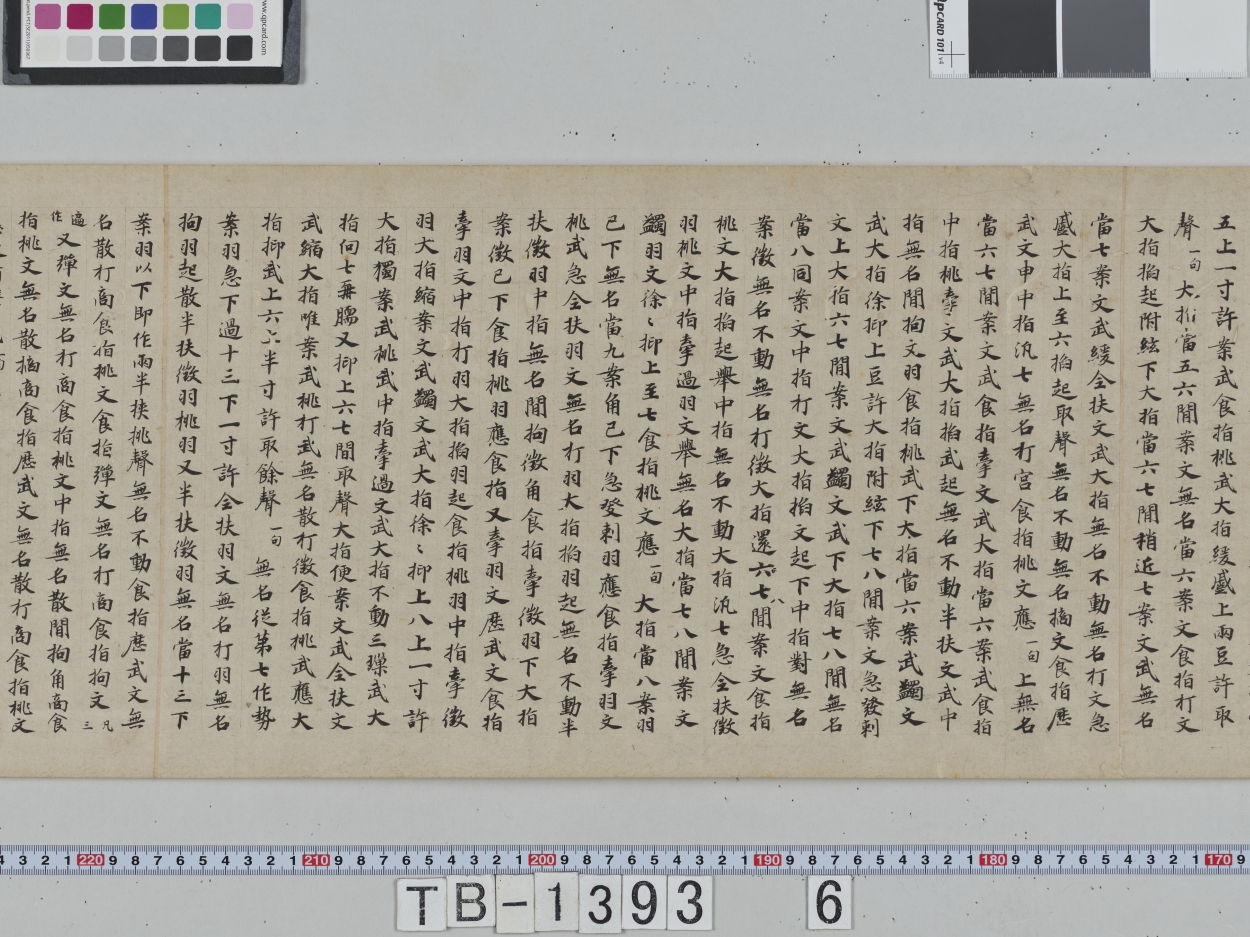 五上一寸許案武食指桃武大指緩蹙上兩豆許取
聲一句大指當五六間案文無名當六案文食指打文
大指掐起附絃下大指當六七間稍近七案文武無名
當七案文武緩全扶文武大指無名不動無名打文急
蹙大指上至六掐起取聲無名不動無名擿文食指歷
武文申中指汎七無名打宮食指桃文應一句上無名
當六七間案文武食指㧢文武大指當六案武食指
中指桃㧢文武大指掐武起無名不動半扶文武中
指無名間拘文羽食指桃武下大指當六案武蠲文
武大指徐抑上豆許大指附絃下七八間案文急發刺
文上大指六七間案文武蠲文武下大指七八間無名
當八同案文中指打文大指掐文起下中指對無名
案徵無名不動無名打徵大指還六七間案文食指
八
桃文大指掐起舉中指無名不動大指汎七急全扶徵
羽桃文中指㧢過羽文舉無名大指當七八間案文
蠲羽文徐〻抑上至七食指桃文應一句大指當八案羽
已下無名當九案角已下急發刺羽應食指㧢羽文
桃武急全扶羽文無名打羽大指掐羽起無名不動半
扶徵羽中指無名間拘徵角食指㧢徵羽下大指
案徵已下食指桃羽應食指又㧢羽文歷武文食指
㧢羽文中指打羽大指掐羽起食指桃羽中指㧢徵
羽大指縮案文武蠲文武大指徐〻抑上八上一寸許
大指獨案武桃武中指㧢過文武大指不動三彈武大
指向七吟臑又抑上六七間取聲大指便案文武全扶文
武縮大指唯案武桃打武無名散打徵食指桃武應大
指抑武上六〻半寸許取餘聲一句無名從第七作勢
案羽急下過十三下一寸許全扶羽文無名打羽無名
拘羽起散半扶徵羽桃羽又半扶徵羽無名當十三下
案羽以下即作兩半扶桃聲無名不動食指歷武文無
名散打商食指桃文食指彈文無名打商食指拘文凡三
遍作又彈文無名打商食指桃文中指無名散間拘角商食
指桃文無名散擿商食指歷武文無名散打商食指桃文
www.cpcard.com
QpCARD 101 v4
4 3 2 1 220 9 8 7 6 5 4 3 2 1 210 9 8 7 6 5 4 3 2 1 200 9 8 7 6 5 4 3 2 1 190 9 8 7 6 5 4 3 2 1 180 9 8 7 6 5 4 3 2 1 170 9
TB-1393 6